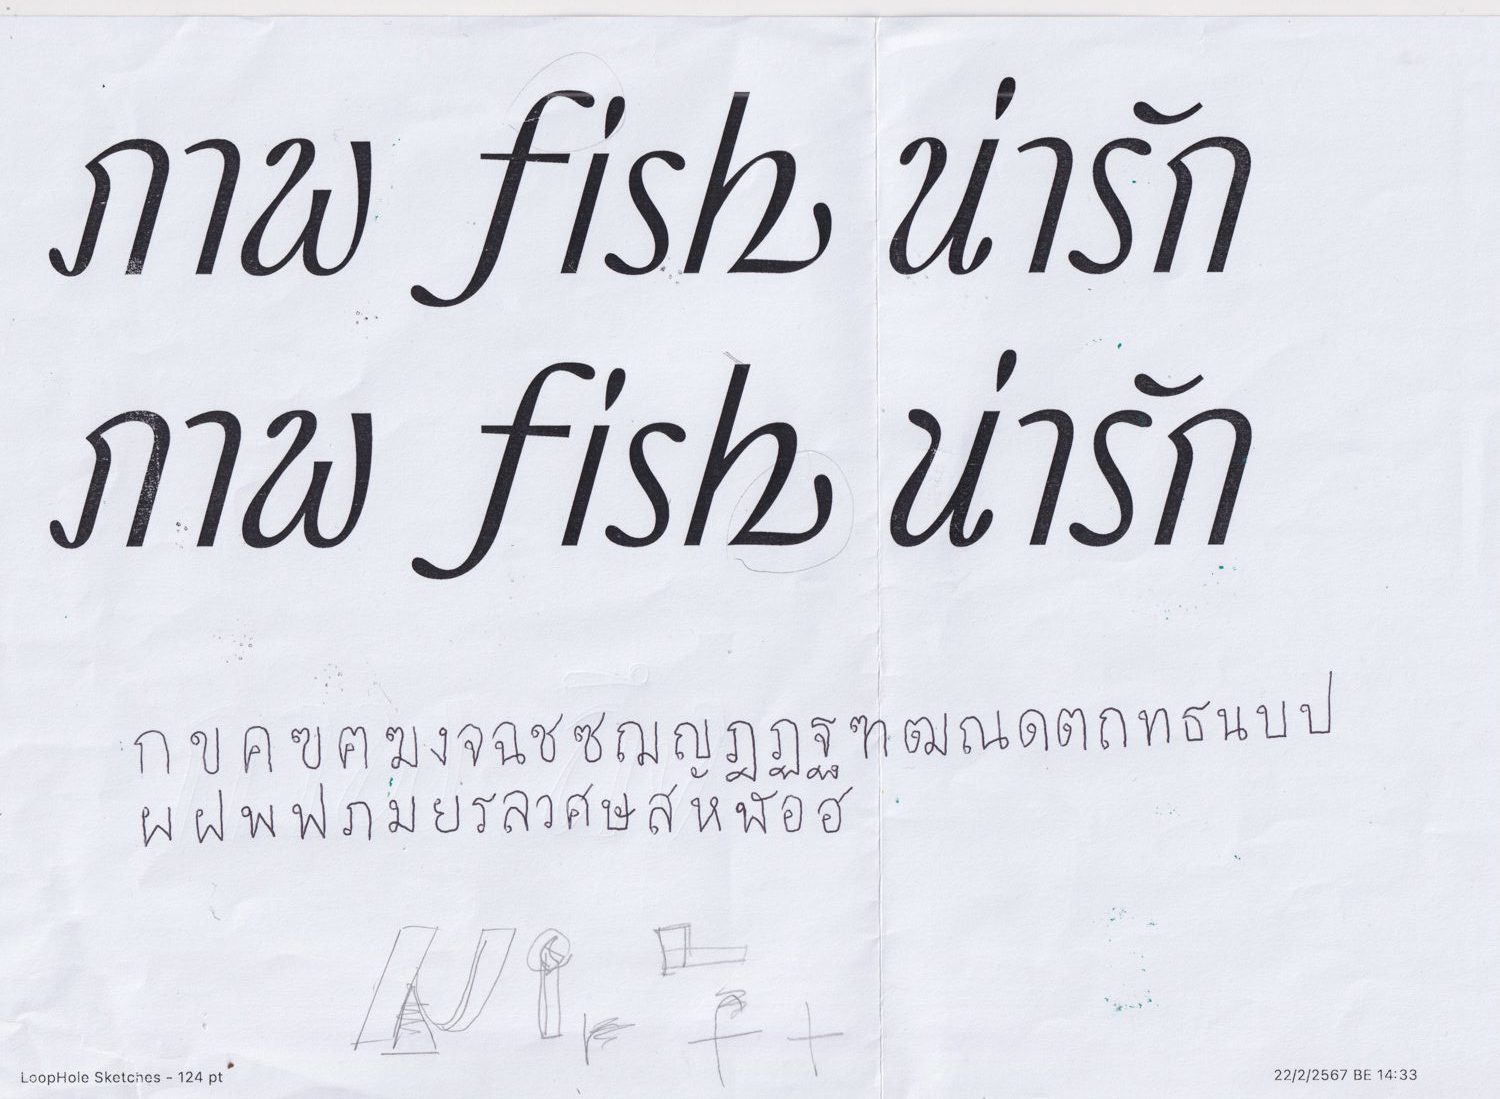 ภาพ fish น่ารัก
ภาพ fish น่ารัก
ก ข ค ฃ ฅ ฆ ง จ ฉ ช ซ ฌ ญ ฎ ฏ ฐ ฑ ฒ ณ ด ต ถ ท ธ น บ ป
ผ ฝ พ ฟ ภ ม ย ร ล ว ศ ษ ส ห ฬ อ ฮ
LoopHole Sketches - 124 pt
22/2/2567 BE 14:33